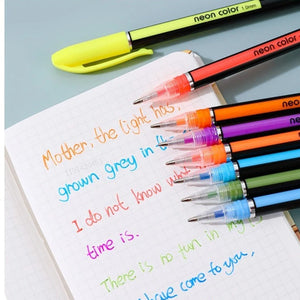 neon color 1.0mm
neon color
neon color
Mother, the light has,
grown grey in th
I do not know what
time is.
There is no fun in my
have come to you,